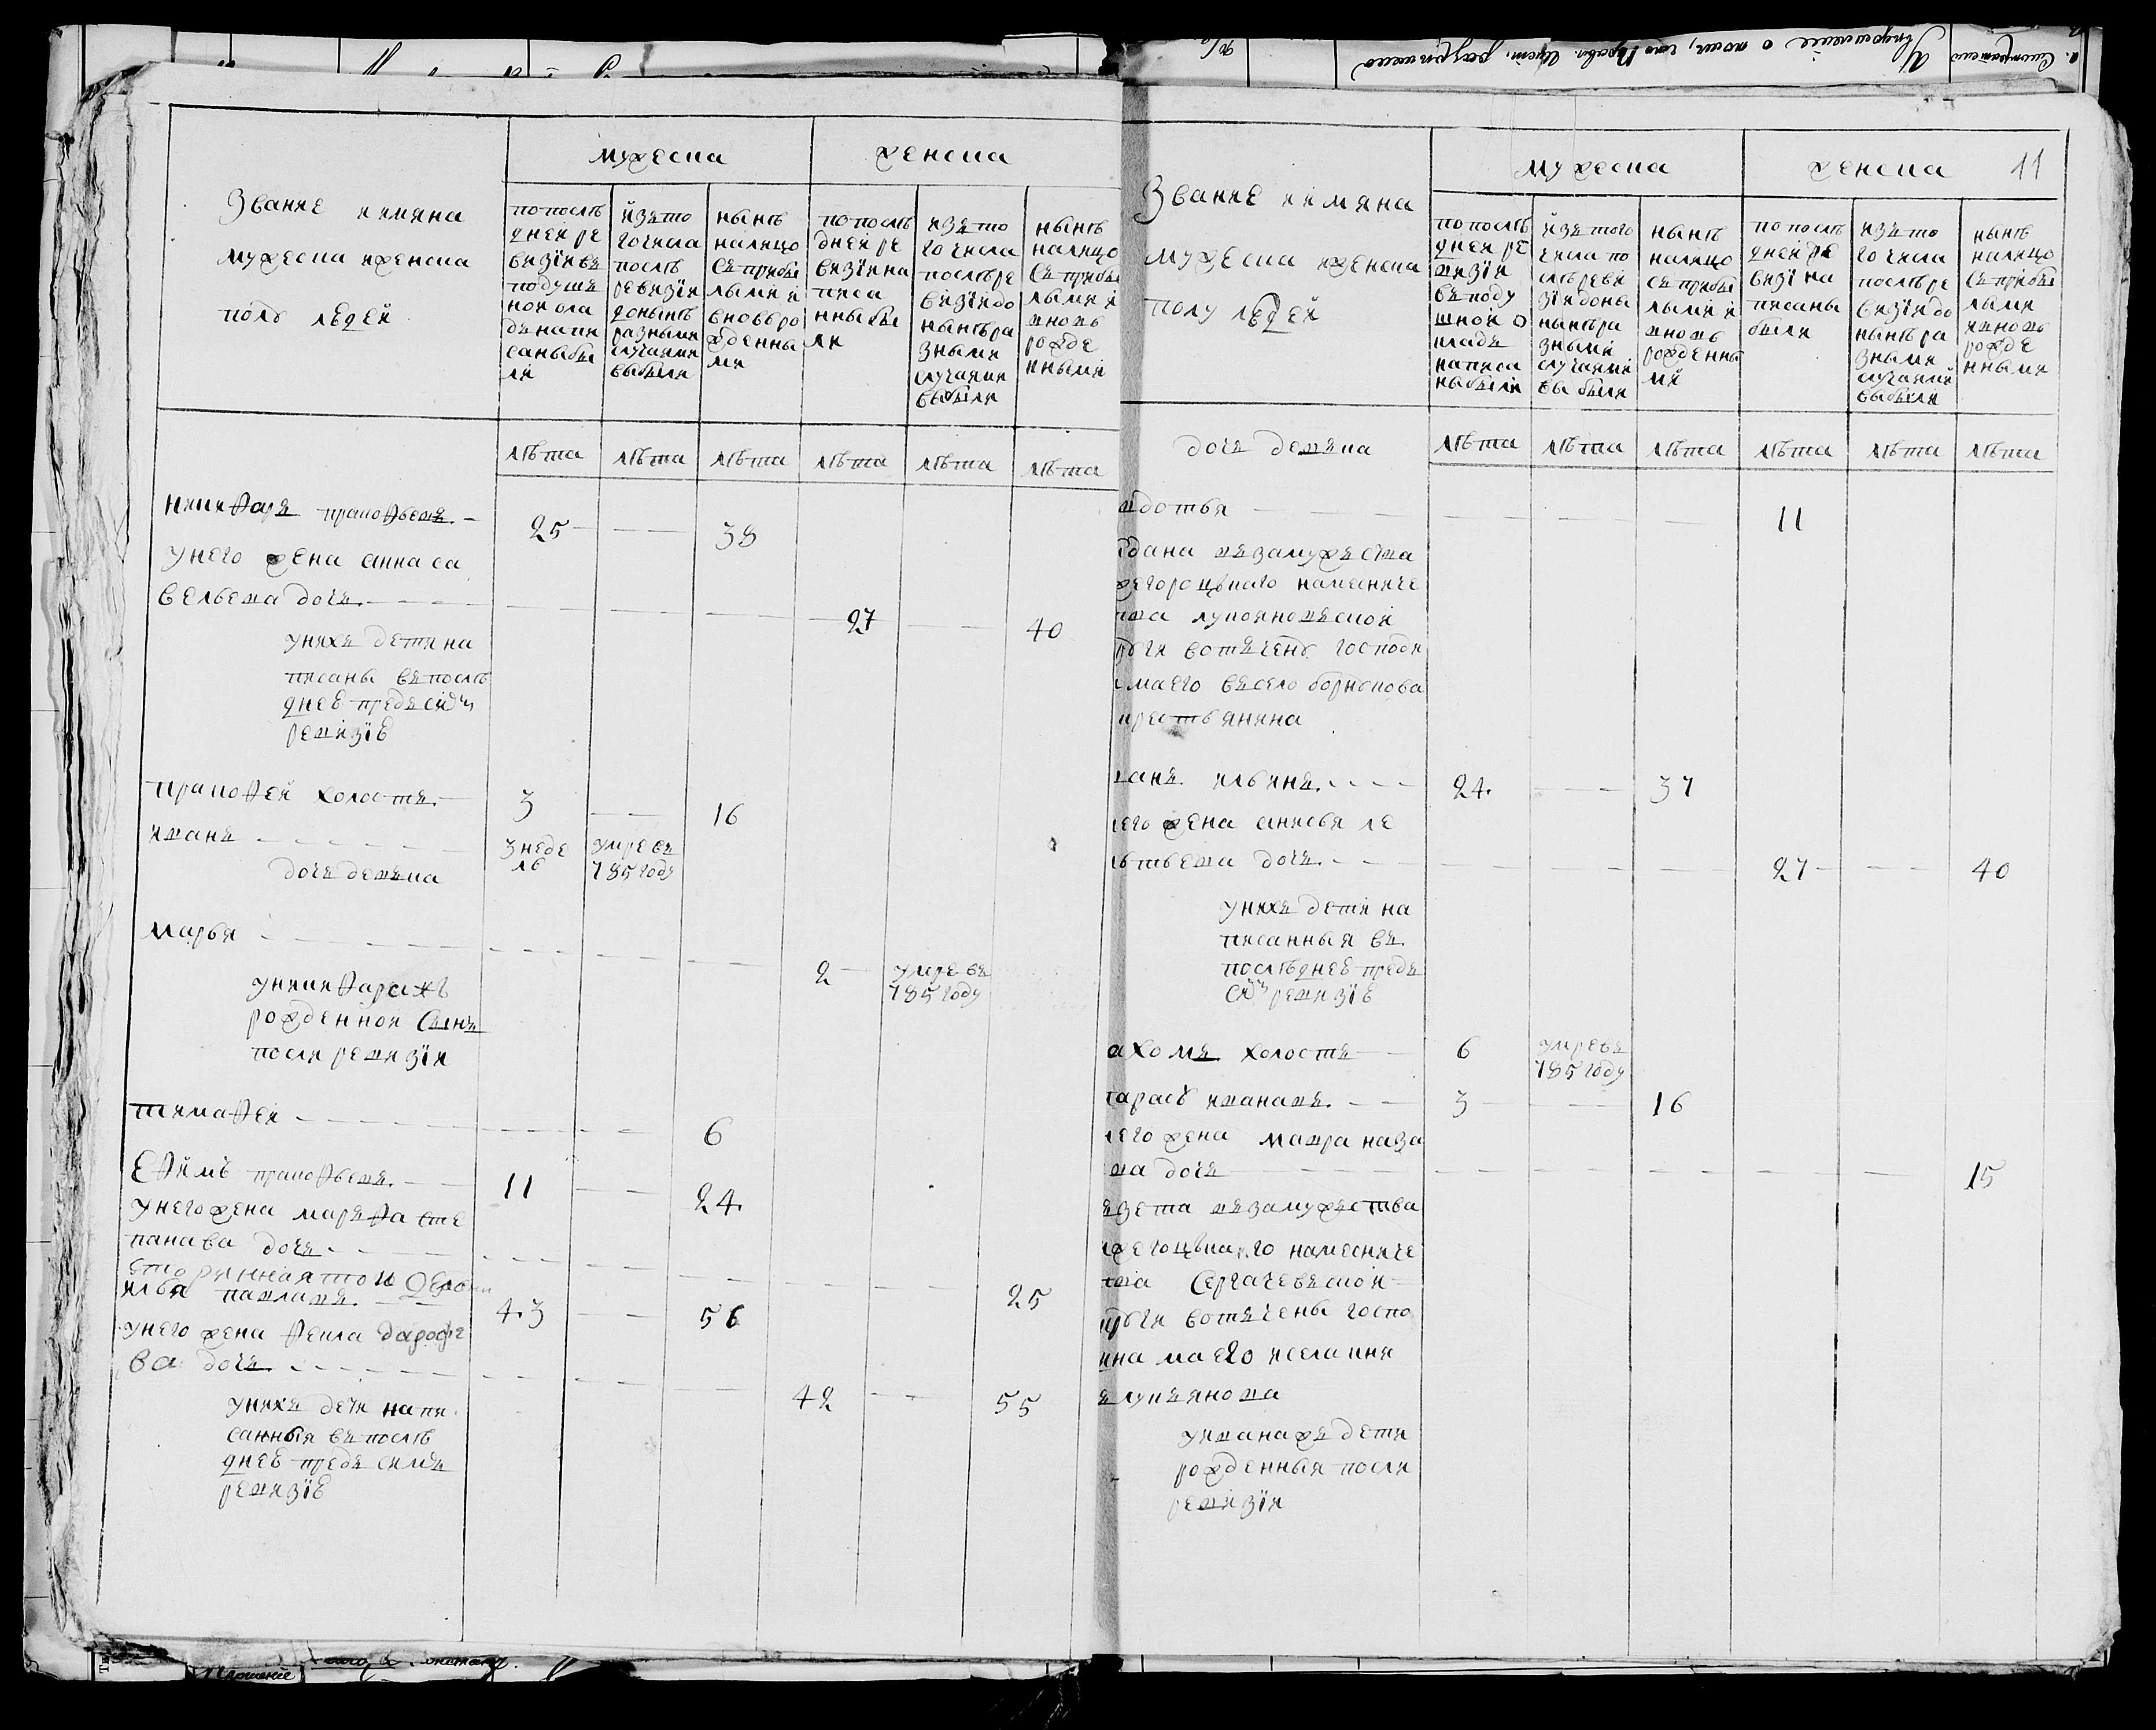 мужеска
женска
Званiе и имяна
мужеска и женска
полу людей
по послѣ
дней ре
визiи въ
подуш
ном окла
де напи
саны бы
ли
изъ то
го числа
послѣ
ревизiи
до нынѣ
разными
случаями
выбыли
нынѣ
налицо
съ прибы
лыми и
вновь ро
жденны
ми
по послѣ
дней ре
визiи на
писа
нны бы
ли
изъ то
го числа
послѣ ре
визiи до
нынѣ ра
зными
случаями
выбыли
нынѣ
налицо
съ прибы
лыми и
вновь
рожде
нными
лѣта лѣта лѣта лѣта лѣта лѣта
никифоръ прокофьевъ 25 38
у него жена анна са
вельева дочь 27 40
у нихъ дети на
писаны въ послѣ
днеѣ предъ сiй
ревизiѣ
прокофей холостъ 3 16
иванъ 3 неде умре въ
ле 785 году
дочь девка
марья 2 умре въ
785 году
у никифора жъ
рожденной сынъ
посли ревизiи
тимофей 6
Ефимъ прокофьевъ 11 24
у него жена марфа сте
панава дочь 25
старинная той деревни
илья павлавъ 43 56
у него жена фекла дарофе
ва дочь 42 55
у нихъ дети напи
санныя въ послѣ
днеѣ предъ симъ
ревизiѣ
мужеска
женска 11
Званiе и имяна
мужеска и женска
полу людей
по послѣ
дней ре
визiи
въ поду
шной о
кладъ
написа
ны были
изъ того
числа по
слѣ реви
зiи до ны
нынѣ ра
зными
случаями
выбыли
нынѣ
налицо
съ прибы
лыми и
вновь
рожденны
ми
по послѣ
дней ре
визiи на
писаны
были
изъ то
го числа
послѣ ре
визiи до
нынѣ ра
зными
случаями
выбыли
нынѣ
налицо
съ прибы
лыми
и вновь
рожде
нными
дочь девка
лѣта лѣта лѣта лѣта лѣта лѣта
вдотья 11
дана въ замужества
жегороцкаго намесниче
тва лукояновской
руги вотчены господи
маего въ село борисова
крестьянина
ванъ ильинъ 24 37
него жена анисья ле
втьева дочь 27 40
у нихъ дети на
писанныя въ
послѣднеѣ предъ
сiй ревизiѣ
ахомъ холостъ 6 умре въ
785 году
тарасъ ивановъ 3 16
него жена мавра наза
ва дочь 15
взета въ замужества
жегоцкаго намесниче
тва Сергачевской
круги вотчены госпо
ина маего иселакия
лукьянова
у ивана жъ дети
рожденныя посли
ревизiи